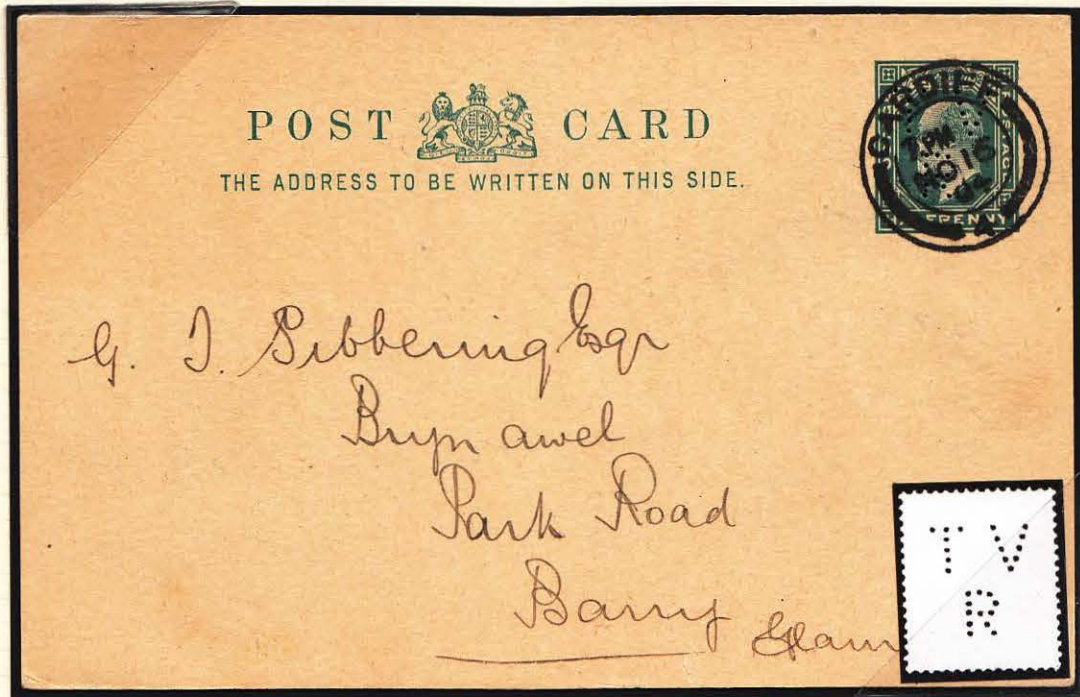 POST CARD
THE ADDRESS TO BE WRITTEN ON THIS SIDE.
CARDIFF
7 PM
NO 16
04
4
EPENNY
G. J. Sibbering Esqr
Bryn awel
Park Road
Barry
Glam
T V
R